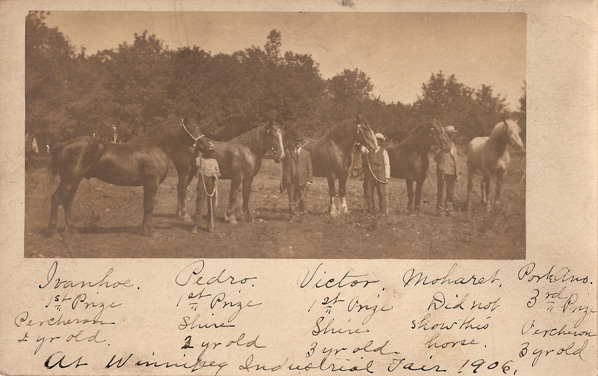 Ivanhoe. Pedro. Victor. Moharet. Pork Ans.
1st Prize 1st Prize 1st Prize Did not 3rd Prize
Percheron Shire Shire show this Percheron
2 yr old. 2 yr old 3 yr old. horse. 3 yr old
At Winnipeg Industrial Fair 1906.